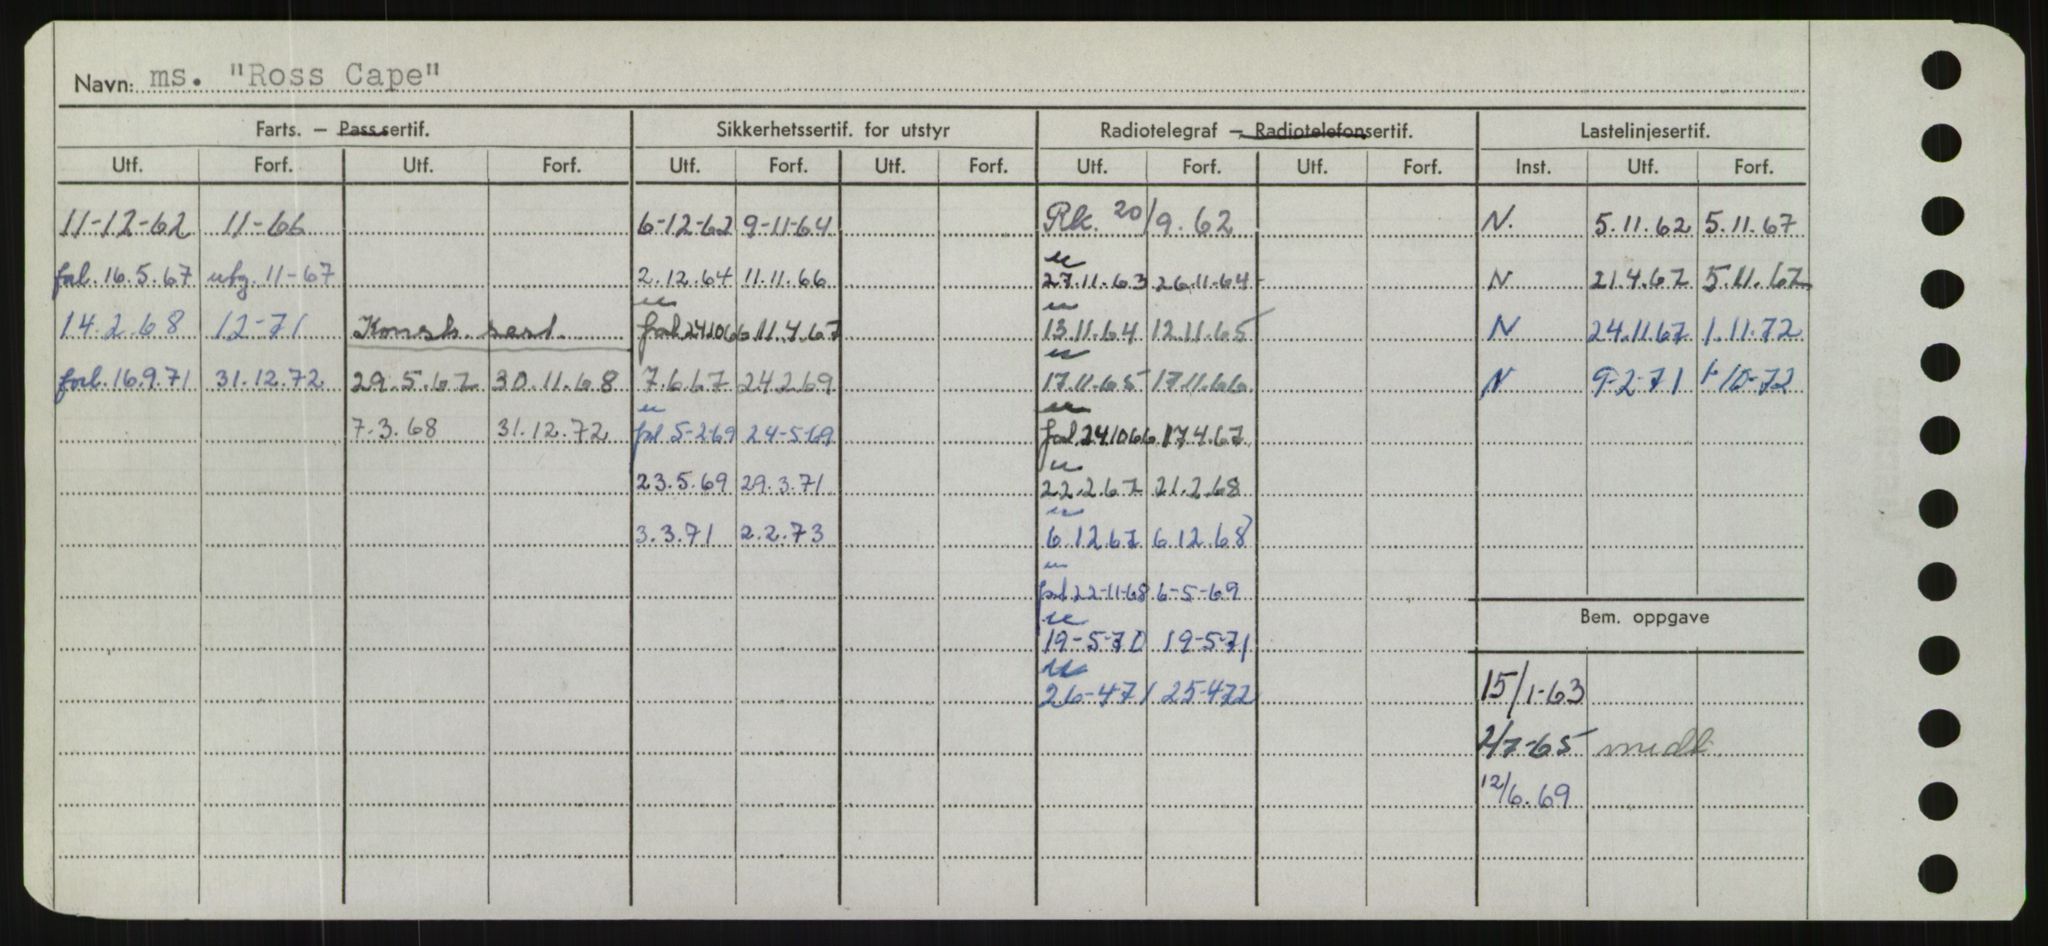 Navn: ms. "Ross Cape"
Farts. — Passsertif. Sikkerhetssertif. for utstyr Radiotelegraf — Radiotelefonsertif. Lastelinjesertif.
Utf. Forf. Utf. Forf. Utf. Forf. Utf. Forf. Utf. Forf. Utf. Forf. Inst. Utf. Forf.
11-12-62 11-66 6-12-62 9-11-64 Rk. 20/9.62 N. 5.11.62 5.11.67
forl. 16.5.67 utg. 11-67 2.12.64 11.11.66 27.11.63 26.11.64 N 21.4.67 5.11.67
14.2.68 12-71 Konstr. sert. forl 241066 11.4.67 13.11.64 12.11.65 N 24.11.67 1.11.72
forl. 16.9.71 31.12.72 29.5.67 30.11.68 7.6.67 24269 17.11.65 17.11.66 N 9-2-71 1-10-72
7.3.68 31.12.72 forl 5-2-69 24-5-69 forl 241066 174.67
23.5.69 29.3.71 22.2.67 21.2.68
3.3.71 2.2.73 6.12.67 6.12.68
forl 22-11-68 6-5-69
Bem. oppgave
19-5-70 19-5-71
15/1-63
26-471 25-472
2/7-65 medl.
12/6.69